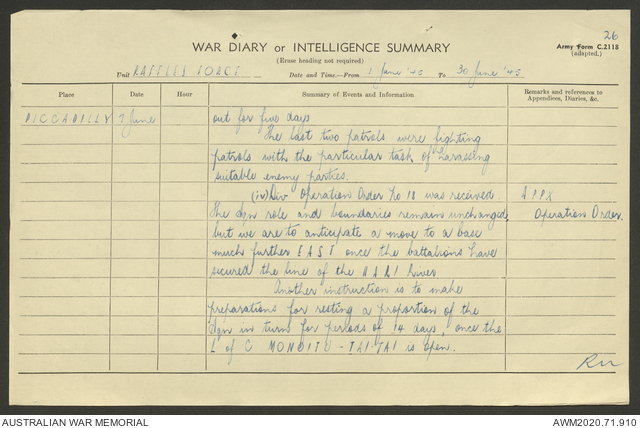 26
WAR DIARY or INTELLIGENCE SUMMARY
Army Form C.2118
(Erase heading not required)
(adapted.)
Unit RAFFLES FORCE Date and Time.—From 1 June '45 To 30 June '45
Place Date Hour Summary of Events and Information Remarks and references to
Appendices, Diaries, &c.
PICCADILLY 7 June out for five days
The last two patrols were fighting
patrols with the particular task of harassing
suitable enemy parties.
(iv) Div Operation Order No 18 was received. APPX
The Bgn role and boundaries remain unchanged, Operation Order.
but we are to anticipate a move to a base
much further EAST once the battalions have
secured the line of the HARI River
Another instruction is to make
preparations for resting a proportion of the
Bgn in turn for periods of 14 days, once the
L of C MONOITU - TAI-TAI is open.
AUSTRALIAN WAR MEMORIAL AWM2020.71.910